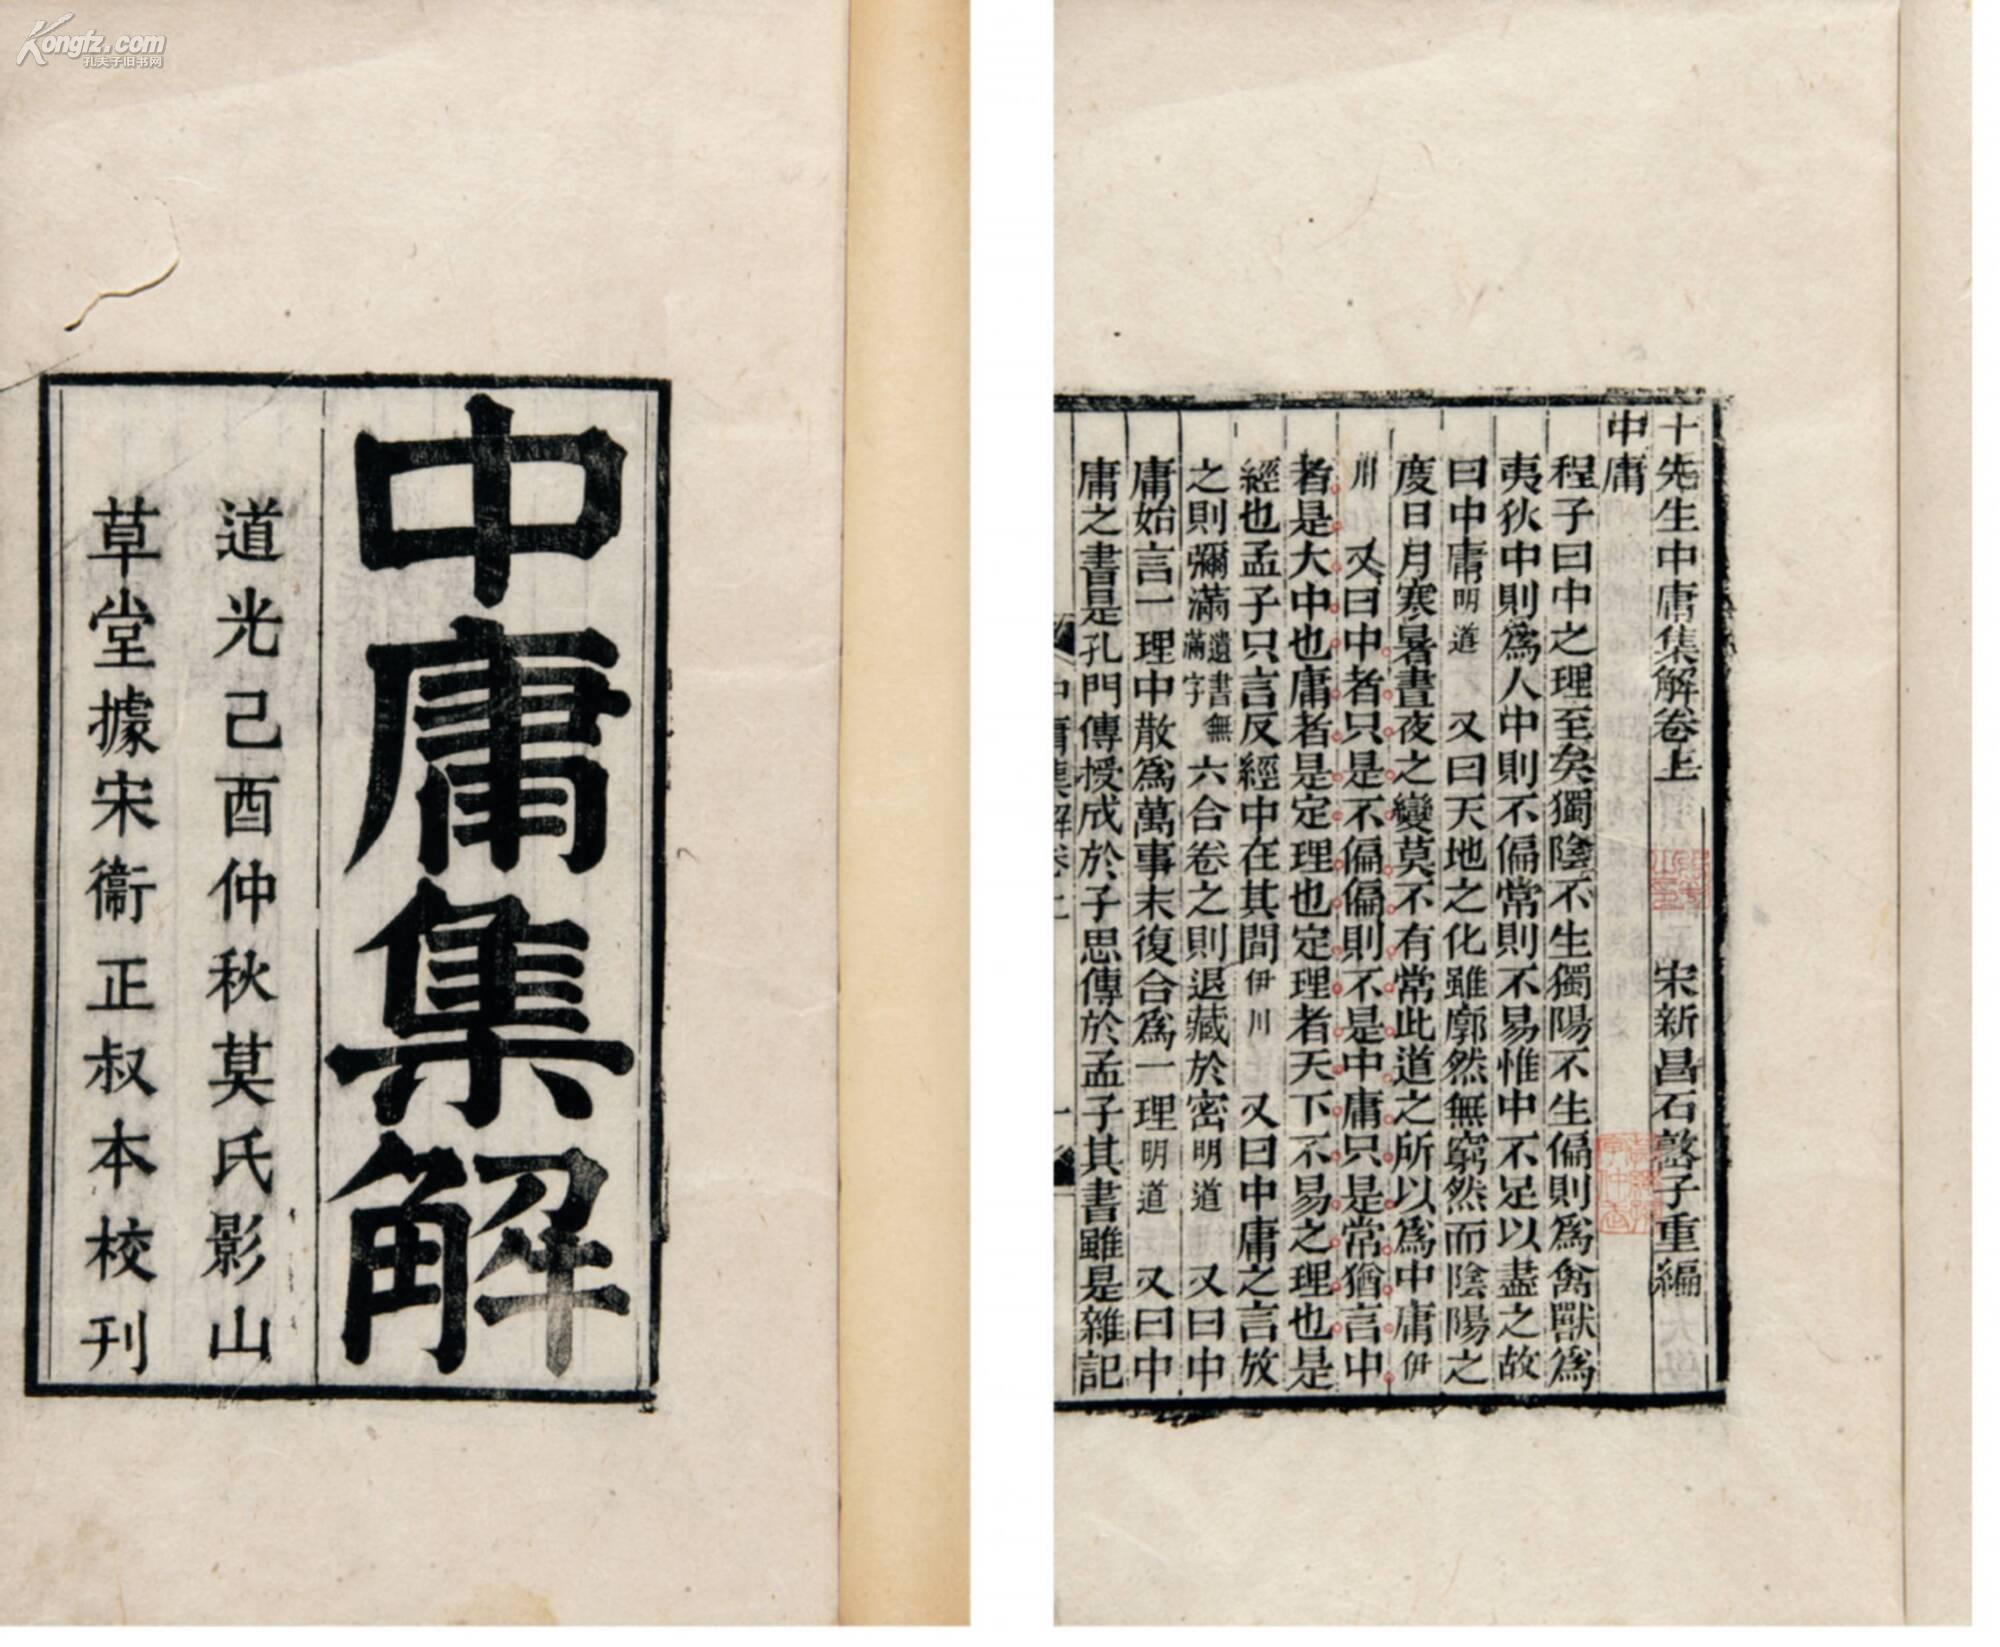 Kongfz.com
孔夫子旧书网
中庸集解
道光己酉仲秋莫氏影山
草堂據宋衞正叔本校刊
十先生中庸集解卷上
宋新昌石𡼖子重編
中庸
程子曰中之理至矣獨陰不生獨陽不生偏則爲禽獸爲
夷狄中則爲人中則不偏常則不易惟中不足以盡之故
曰中庸明道 又曰天地之化雖廓然無窮然而陰陽之
度日月寒暑晝夜之變莫不有常此道之所以爲中庸伊
川 又曰中者只是不偏偏則不是中庸只是常猶言中
者是大中也庸者是定理也定理者天下不易之理也是
經也孟子只言反經中在其間伊川 又曰中庸之言放
之則彌滿遺書無滿字六合卷之則退藏於密明道 又曰中
庸始言一理中散爲萬事末復合爲一理明道 又曰中
庸之書是孔門傳授成於子思傳於孟子其書雖是雜記